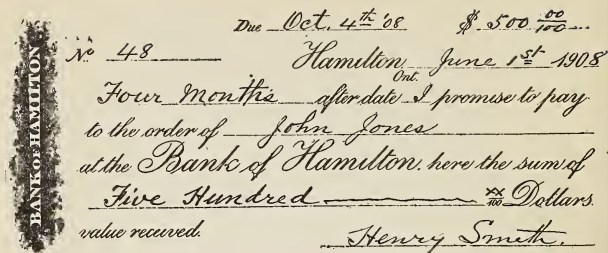 Due Oct. 4th '08 $ 500 00/100
No 48 Hamilton, Ont. June 1st 1908
Four Months after date I promise to pay
to the order of John Jones
at the Bank of Hamilton, here the sum of
Five Hundred xx/100 Dollars.
value received.
Henry Smith.
BANK OF HAMILTON